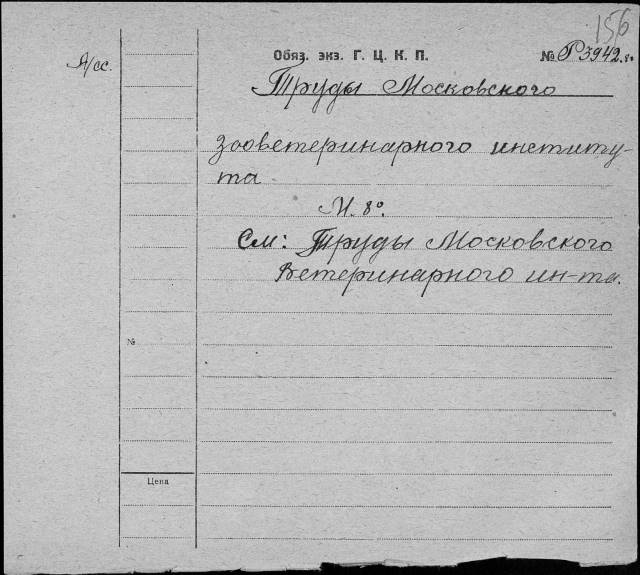 156
А/сс. Обяз. экз. Г. Ц. К. П. № Р3942.8°
Труды Московского
зооветеринарного институ-
та
М. 8°.
См: Труды Московского
Ветеринарного ин-та.
№
Цена